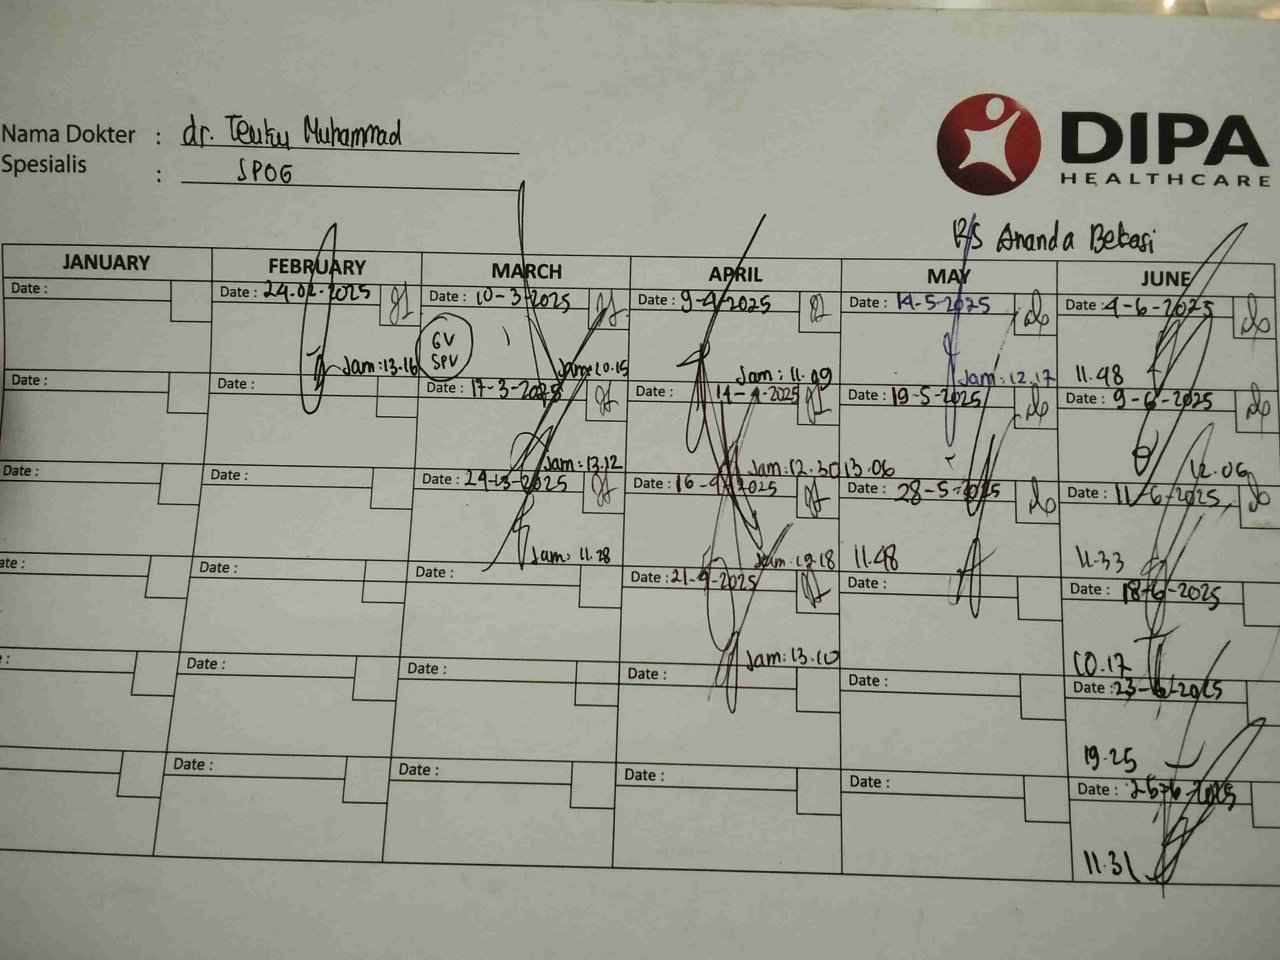 DIPA
HEALTHCARE
Nama Dokter : dr. Teuku Muhammad
Spesialis : SPOG
RS Ananda Bekasi
JANUARY FEBRUARY MARCH APRIL MAY JUNE
Date : Date : 24-02-2025 Date : 10-3-2025 Date : 9-4-2025 Date : 14-5-2025 Date : 4-6-2025
GV
SPV
Jam: 13.16 Jam: 10.15 Jam: 11.09 Jam: 12.17 11.48
Date : Date : Date : 17-3-2025 Date : 14-4-2025 Date : 19-5-2025 Date : 9-6-2025
Jam: 13.12 Jam: 12.30 13.06 12.06
Date : Date : Date : 24-3-2025 Date : 16-4-2025 Date : 28-5-2025 Date : 11-6-2025
Jam: 11.28 Jam: 12.18 11.48 11.33
ate : Date : Date : Date : 21-4-2025 Date : Date : 18-6-2025
Jam: 13.10 10.17
: Date : Date : Date : Date : Date : 23-6-2025
19.25
Date : Date : Date : Date : Date : 25-6-2025
11.31